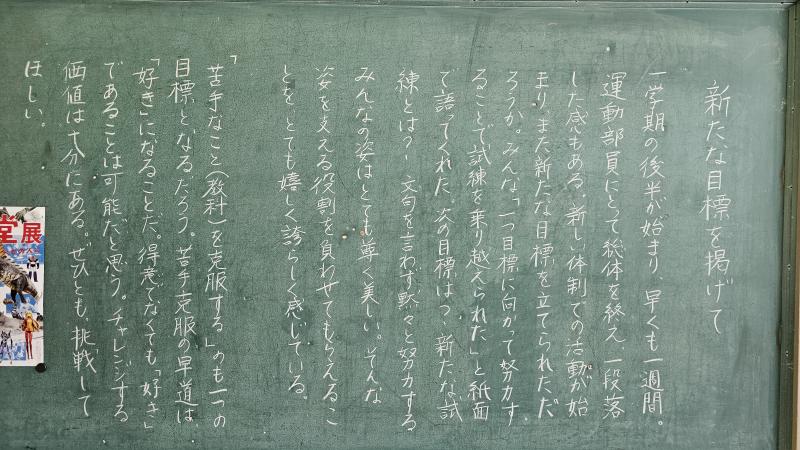 新たな目標を掲げて
一学期の後半が始まり、早くも一週間。
運動部員にとって総体を終え、一段落
した感もある。新しい体制での活動が始
まり、また新たな目標を立てられただ
ろうか。みんな「一つ目標に向かって努力す
ることで試練を乗り越えられた」と紙面
で語ってくれた。次の目標は？新たな試
練とは？文句を言わず黙々と努力する
みんなの姿はとても尊く美しい。そんな
姿を支える役割を負わせてもらえるこ
とを、とても嬉しく誇らしく感じている。
「苦手なこと(教科)を克服する」のも一つの
目標となるだろう。苦手克服の早道は、
「好き」になることだ。得意でなくても「好き」
であることは可能だと思う。チャレンジする
価値は十分にある。ぜひとも、挑戦して
ほしい。
堂展